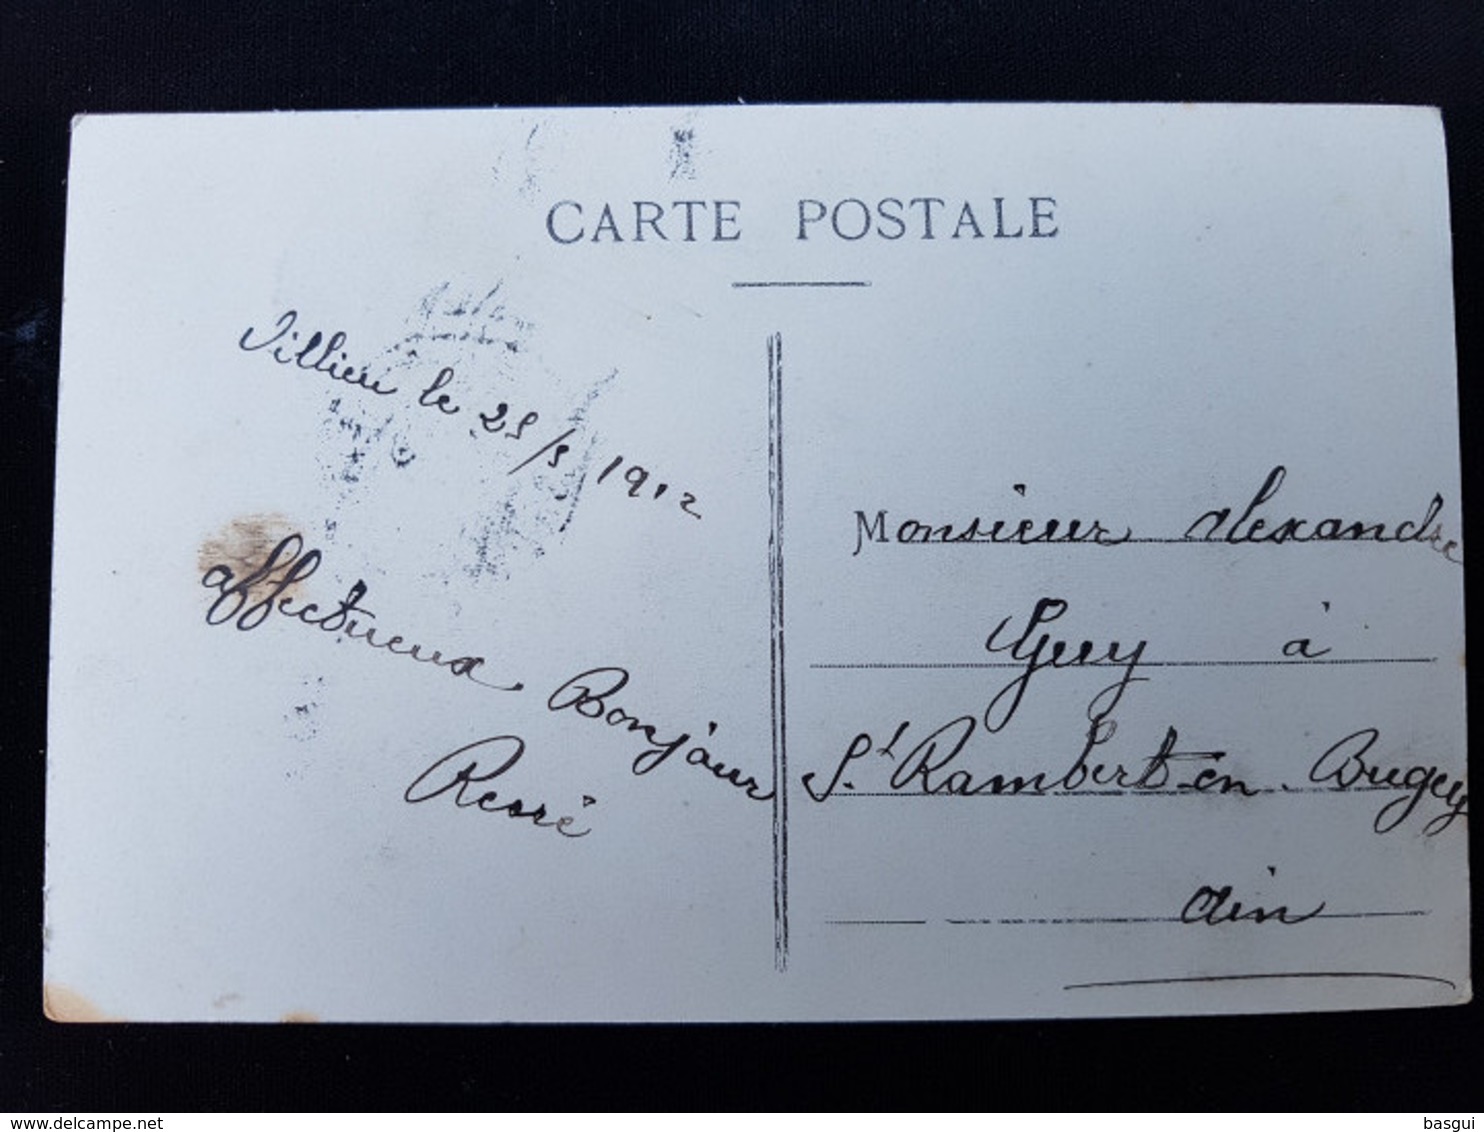 CARTE POSTALE
Villieu le 25/5 1912
affectueux Bonjour
René
Monsieur Alexandre
Guy à
St Rambert-en-Bugey
Ain
delcampe.net
basgui